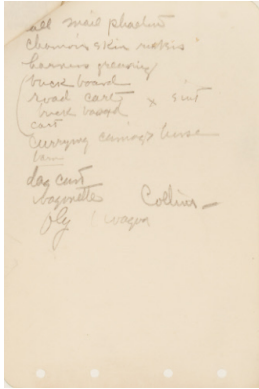 all snail phaeton
chamois skin
harness greasing
buck board
road cart x
buck board
cart
currying horse
dog cart
wagonette Collins –
fly / wagon